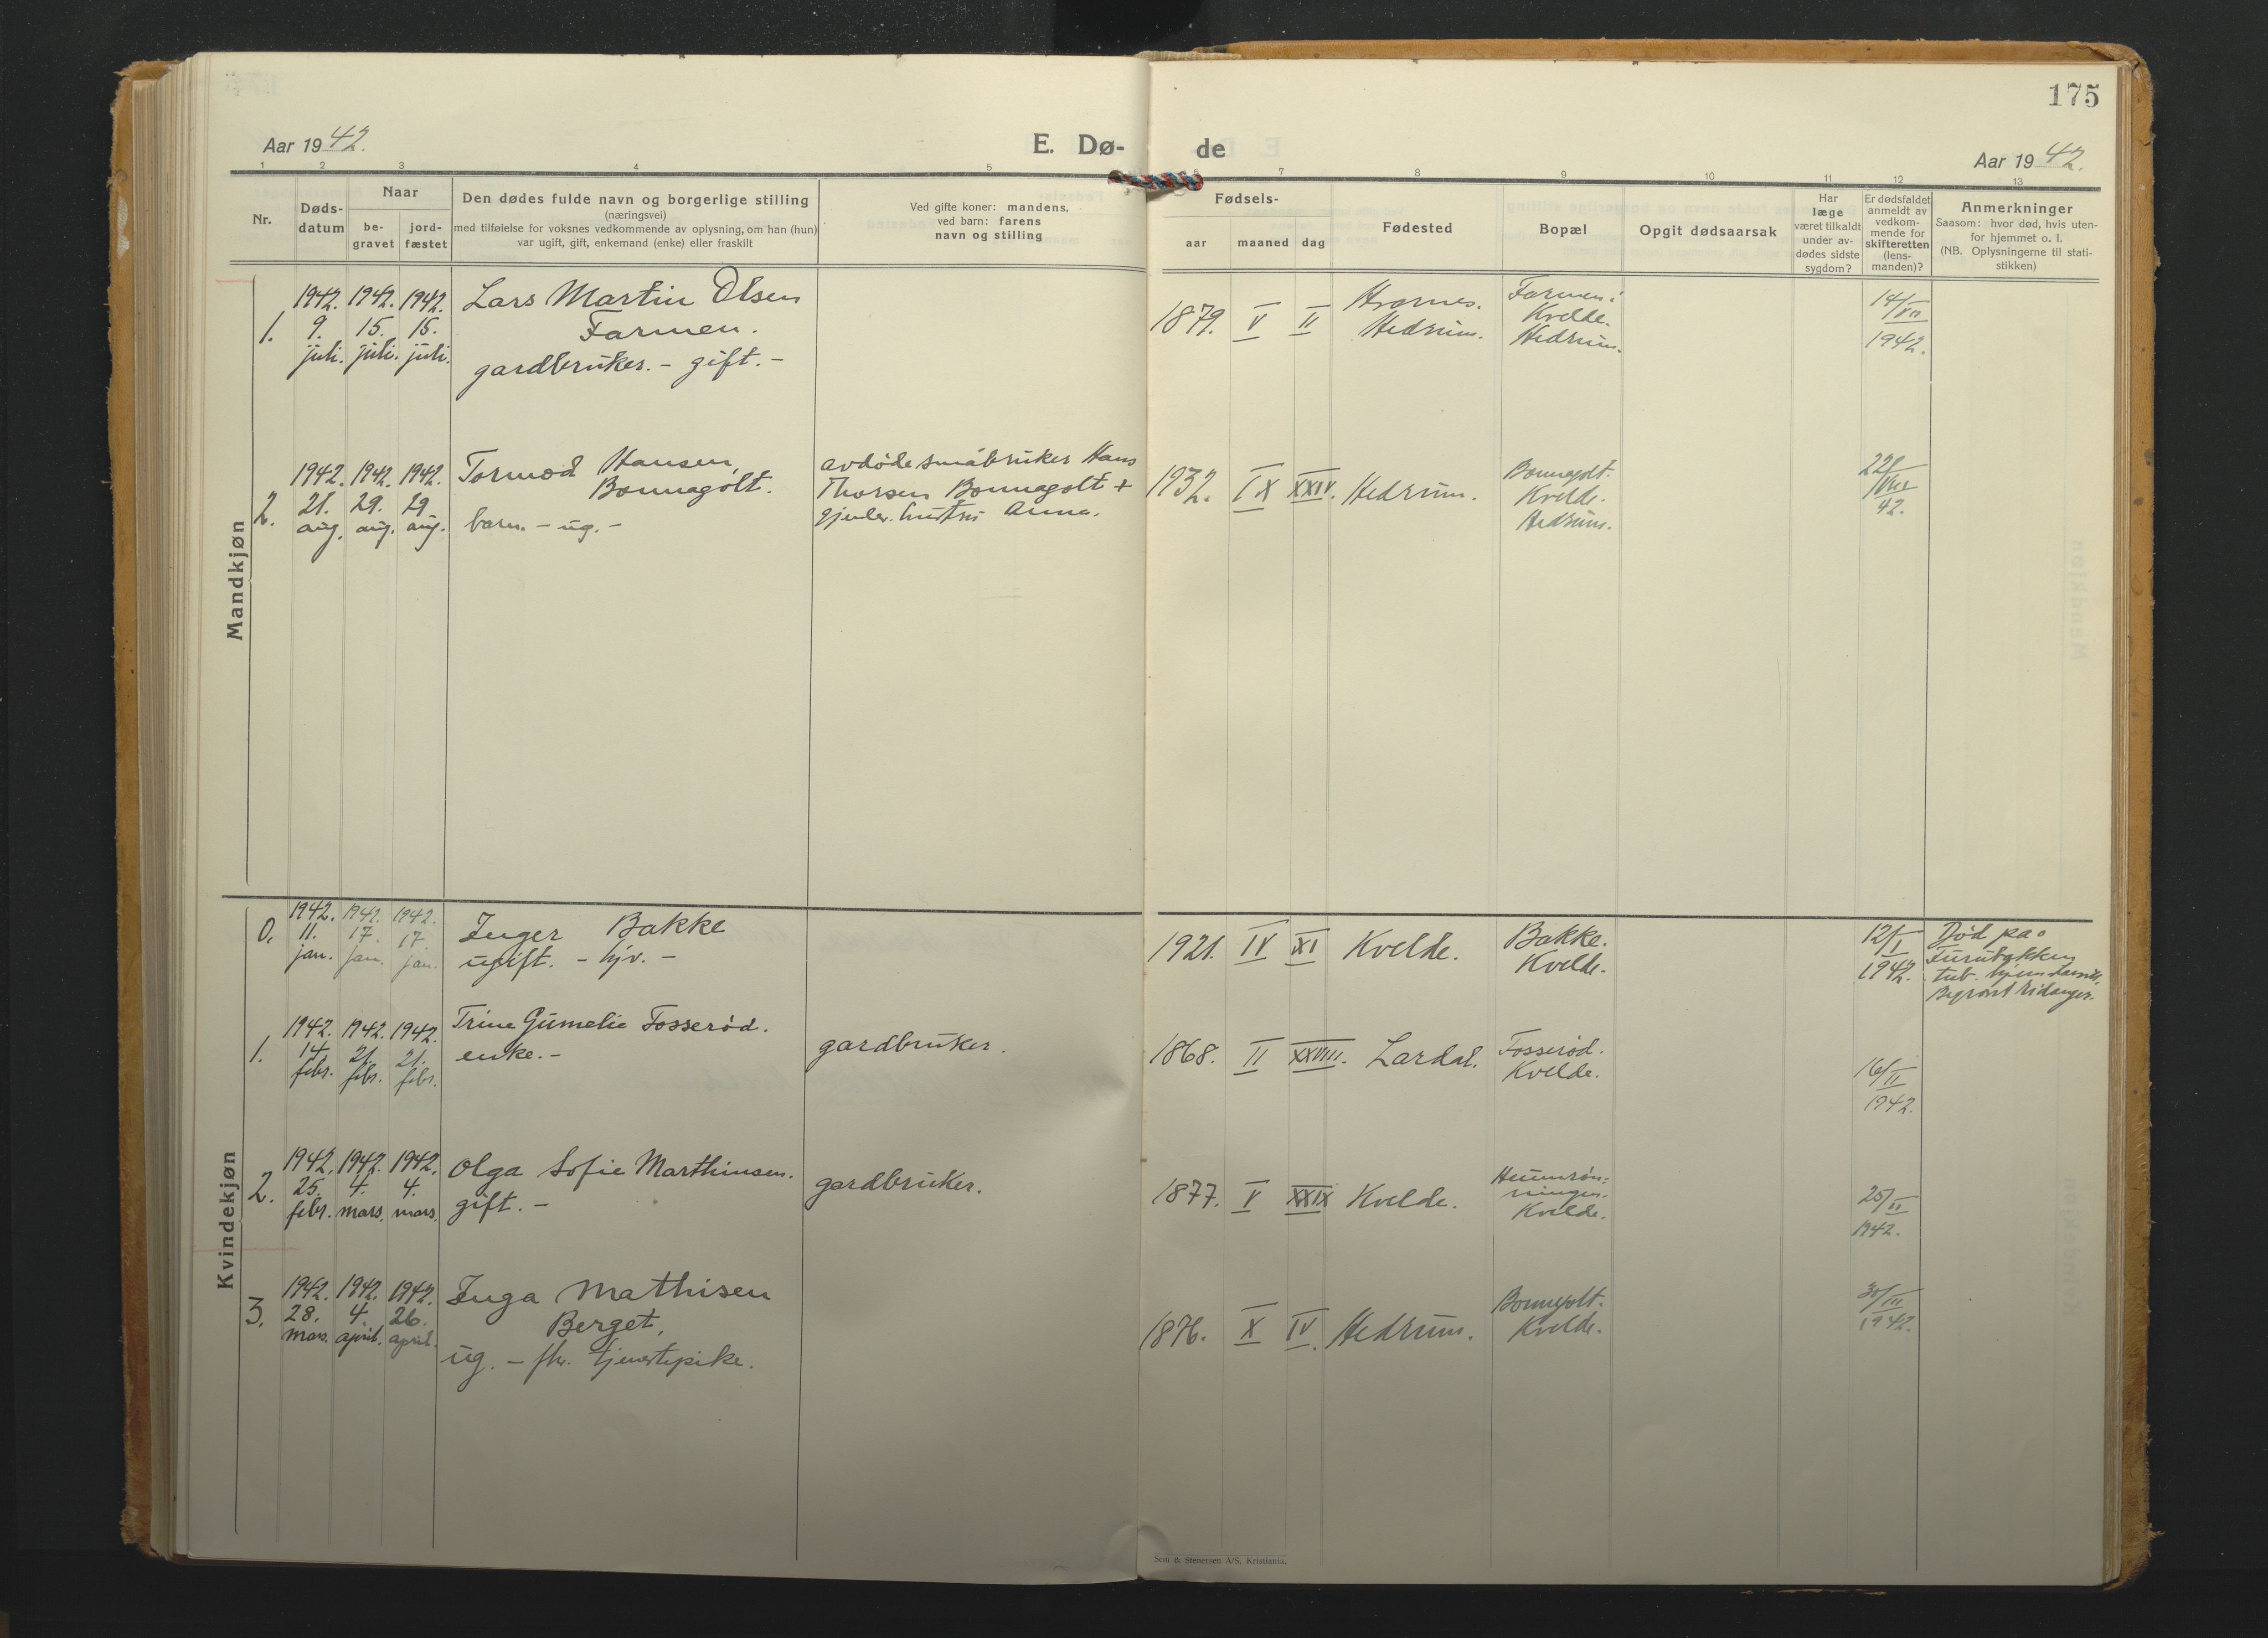 175
Aar 1942.
E. Dø-
de
Aar 1942.
1 2 3 4 5 6 7 8 9 10 11 12 13
Nr.
Døds-
datum
Naar
be-
gravet
jord-
fæstet
Den dødes fulde navn og borgerlige stilling
(næringsvei)
med tilføielse for voksnes vedkommende av oplysning, om han (hun)
var ugift, gift, enkemand (enke) eller fraskilt
Ved gifte koner: mandens,
ved barn: farens
navn og stilling
Fødsels-
aar
maaned
dag
Fødested
Bopæl
Opgit dødsaarsak
Har
læge
været tilkaldt
under av-
dødes sidste
sygdom?
Er dødsfaldet
anmeldt av
vedkom-
mende for
skifteretten
(lens-
manden)?
Anmerkninger
Saasom: hvor død, hvis uten-
for hjemmet o. l.
(NB. Oplysningerne til stati-
stikken)
Mandkjøn
1.
1942.
9.
juli.
1942.
15.
juli.
1942.
15.
juli.
Lars Martin Olsen
Farmen.
gardbruker. - gift. -
1879.
V
II
Hvarnes.
Hedrum.
Farmen i
Kvelde.
Hedrum.
14/VII
1942.
2.
1942.
21.
aug.
1942.
29.
aug.
1942.
29.
aug.
Tormod Hansen
Bonnagolt.
barn. - ug. -
avdøde småbruker Hans
Thorsen Bonnagolt +
gjenlev. hustru Anna.
1932.
IX
XXIV.
Hedrum.
Bonnegolt.
Kvelde.
Hedrum.
22/VIII
42.
Kvindekjøn
0.
1942.
11.
jan.
1942.
17.
jan.
1942.
17.
jan.
Inger Bakke
ugift. - hjv. -
1921.
IV
XI
Kvelde.
Bakke.
Kvelde.
12/I
1942.
Død på
Furubakken
tub. hjem
Begravet
1.
1942.
14.
febr.
1942.
21.
febr.
1942.
21.
febr.
Trine Gumelie Fosserød.
enke. -
gardbruker.
1868.
II
XXVIII.
Lardal.
Fosserød.
Kvelde.
16/II
1942.
2.
1942.
25.
febr.
1942.
4.
mars.
1942.
4.
mars.
Olga Sofie Marthinsen.
gift. -
gardbruker.
1877.
V
XXIX
Kvelde.
Kvelde.
25/II
1942.
3.
1942.
28.
mars.
1942.
4.
april.
1942.
26.
april.
Inga Mathisen
Berget,
ug. - fhv. tjenestepike.
1876.
X
IV.
Hedrum.
Bonnegolt.
Kvelde.
30/III
1942.
Sem & Stenersen A/S, Kristiania.